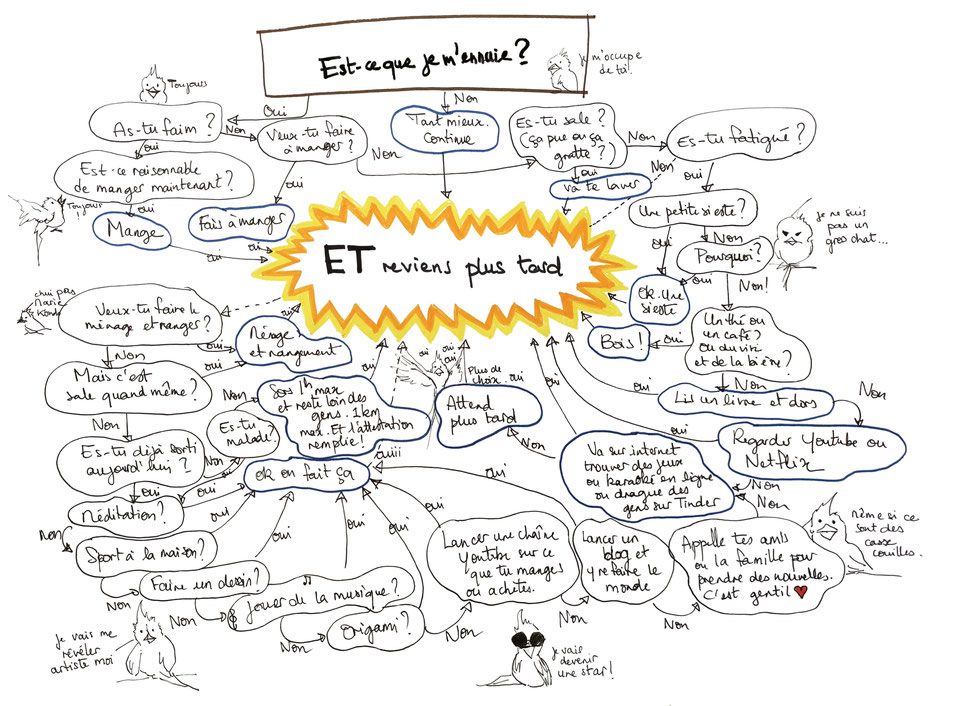 Est-ce que je m'ennuie?
je m'occupe
de toi!
Toujours
Oui
Non
As-tu faim ?
Non
Veux-tu faire
à manger ?
Tant mieux.
Continue
Es-tu sale ?
(ça pue ou ça
gratte ?)
Non
Es-tu fatigué ?
oui
Non
oui
Non
oui
Est-ce raisonnable
de manger maintenant ?
oui
va te laver
Une petite sieste ?
je ne suis
pas un
gros chat...
Toujours
!
oui
Mange
Fais à manger
oui
oui
oui
Non
Pourquoi ?
ET reviens plus tard
oui
Non!
Ok. Une
sieste
chui pas
Marie
Veux-tu faire le
ménage et ranger ?
oui
Ménage
et rangement
Bois !
oui
Un thé ou
un café ?
ou du
et de la bière ?
Non
oui
oui
oui
oui
Mais c'est
sale quand même ?
oui
Sors 1h max
et reste loin des
gens. 1km
max. Et l'attestation
remplie !
Plus de
choix. oui
Attend
plus tard
oui
oui
Non
Non
Lis un livre et dors
Non
Non
Es-tu
malade ?
Non
oui
Regarder Youtube ou
Netflix
Es-tu déjà sorti
aujourd'hui ?
Non
ouiii
Ok on fait ça
oui
Non
Va sur internet
trouver des jeux
ou karaoké en ligne
ou drague des
gens sur Tinder
Non
Non
oui
oui
Méditation ?
oui
oui
oui
oui
oui
Non
Sport à la maison ?
Lancer une chaîne
Youtube sur ce
que tu manges
ou achètes.
Lancer un
blog et
y refaire le
monde
Appelle tes amis
ou la famille pour
prendre des nouvelles.
C'est gentil
Même si ce
sont des
casse
couilles.
Faire un dessin ?
Non
Jouer de la musique ?
Non
Origami ?
Non
Non
Non
Non
je vais me
révéler
artiste moi
je vais
devenir
une star !